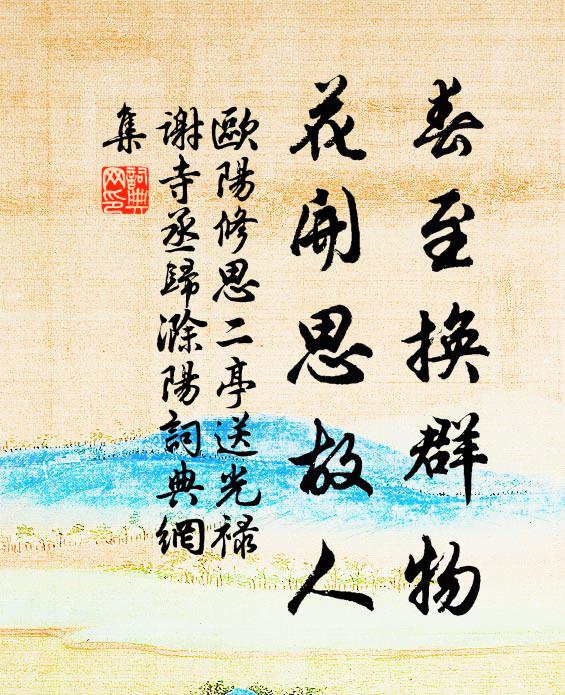 春至換群物
花開思故人
歐陽修思二亭送光祿
謝寺丞歸滁陽詞典網
集
詞典
网印